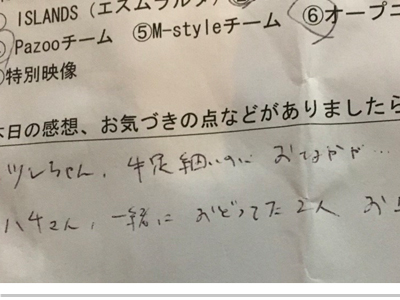 ISLANDS（エスムラルダ）
Pazooチーム ⑤M-styleチーム ⑥オープニ
特別映像
本日の感想、お気づきの点などがありましたら
ツレちゃん、手足細いのに おなかが…
ハチさん、一緒に おどってた2人 お